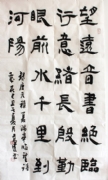 望遠音書絶臨
行意緒長殷勤
眼前水千里到
河陽